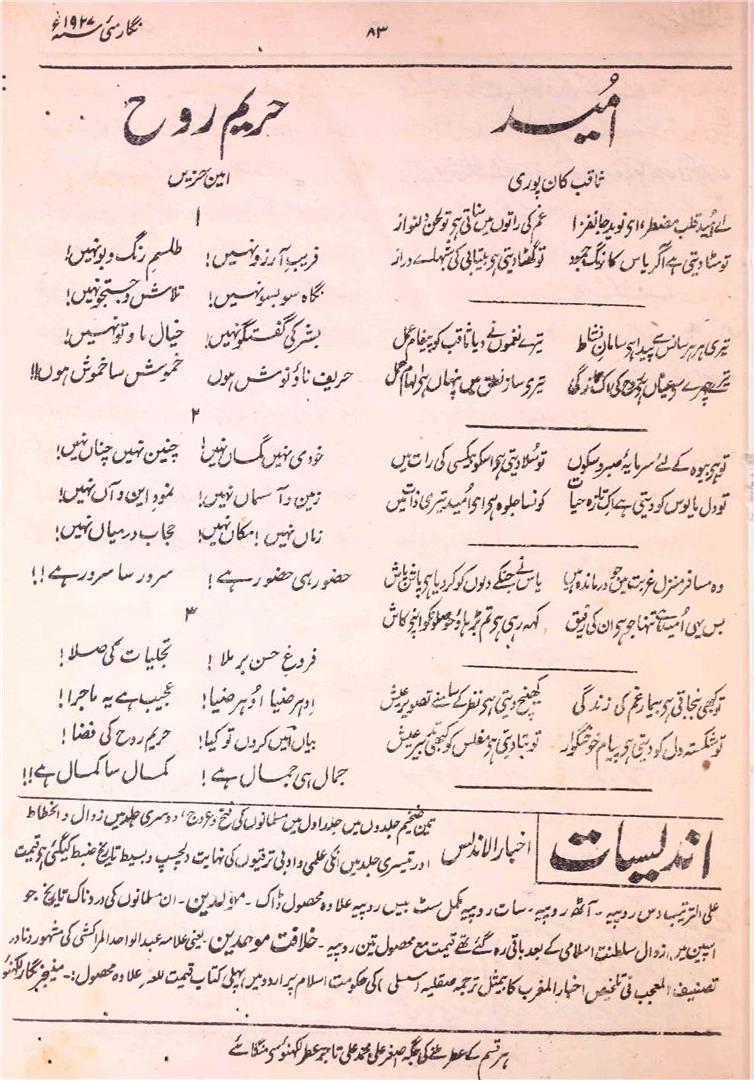 نگار مئی سنہ ۱۹۲۷ء
۸۳
اُمید
ثاقب کان پوری
اے اُمید قلب مضطر، ای نوید جانفزا غم کی راتوں میں سناتی ہو تو لحن دلنواز
تو مٹا دیتی ہے اگر یاس کا زنگ جمود تو گھٹا دیتی ہو بیتابی کی شبہائے دراز
تیری ہر ہر سانس سے پیدا ہو سامان نشاط تیرے نغموں نے دیا ثاقب کو پیغام عمل
تیرے چہرے سے عیاں ہو روح کی اک تازگی تیری ساز نطق میں پنہاں ہو الہام عمل
تو ہی بیوہ کے لئے سرمایۂ صبر و سکوں تو سُلا دیتی ہو اسکو بیکسی کی رات میں
تو دل مایوس کو دیتی ہے اک تازہ حیات کونسا جلوہ ہو ای اُمید تیری ذات میں
وہ مسافر منزل غربت میں جو درماندہ ہیں یاس نے جنکے دلوں کو کر دیا ہو پاش پاش
بس یہی اُمید ہے تنہا جو ہو ان کی رفیق کہہ رہی ہو تم بڑھاؤ حوصلو کو اپنے کاش
تو کبھی بنجاتی ہو بیمار غم کی زندگی کھینچ دیتی ہو نظر کے سامنے تصویر عیش
تو شکستہ دل کو دیتی ہو پیام خوشگوار تو بتا دیتی ہو مفلس کو کبھی تدبیر عیش
حریم روح
امین حزیں
۱
فریبِ آرزو نہیں! طلسمِ رنگ و بو نہیں!
نگاہ سو بسو نہیں! تلاش و جستجو نہیں!
بشر کی گفتگو نہیں! خیال ما و تو نہیں!
حریف ناؤ نوش ہوں خموش سا خموش ہوں!!
۲
خودی نہیں گماں نہیں! چنین نہیں چناں نہیں!
زمین و آسماں نہیں! نمودِ این و آں نہیں!
زماں نہیں! مکاں نہیں! حجاب درمیاں نہیں!
حضور ہی حضور ہے! سرور سا سرور ہے!!
۳
فروغِ حسن برملا! تجلیات کی صلا!
اِدہر ضیا اُدہر ضیا! عجیب ہے یہ ماجرا!
بیاں امیں کروں تو کیا! حریم روح کی فضا!
جمال ہی جمال ہے! کمال سا کمال ہے!!
اندلسیات
اخبار الاندلس تین ضخیم جلدوں میں جلد اول میں مسلمانوں کی فتح و عروج، دوسری جلد میں زوال و انحطاط
اور تیسری جلد میں انکی علمی و ادبی ترقیوں کی نہایت دلچسپ و بسیط تاریخ ضبط کیگئی ہو قیمت
علی الترتیب دس روپیہ۔ آٹھ روپیہ۔ سات روپیہ مکمل سٹ بیس روپیہ علاوہ محصول ڈاک۔ مولدین۔ ان مسلمانوں کی دردناک تاریخ جو
اسپین میں زوال سلطنت اسلامی کے بعد باقی رہ گئے تھے قیمت مع محصول تین روپیہ۔ خلافت موحدین۔ یعنی علامہ عبدالواحد المراکشی کی مشہور و نادر
تصنیف المعجب فی تلخیص اخبار المغرب کا بیمثل ترجمہ صقلیہ (سسلی) کی حکومت اسلام پر اردو میں پہلی کتاب قیمت للعہ علاوہ محصول:۔ منیجر نگار لکھنؤ
ہر قسم کے عطر ملنے کی جگہ اصغر علی محمد علی تاجر عطر لکھنؤ سو منگائے